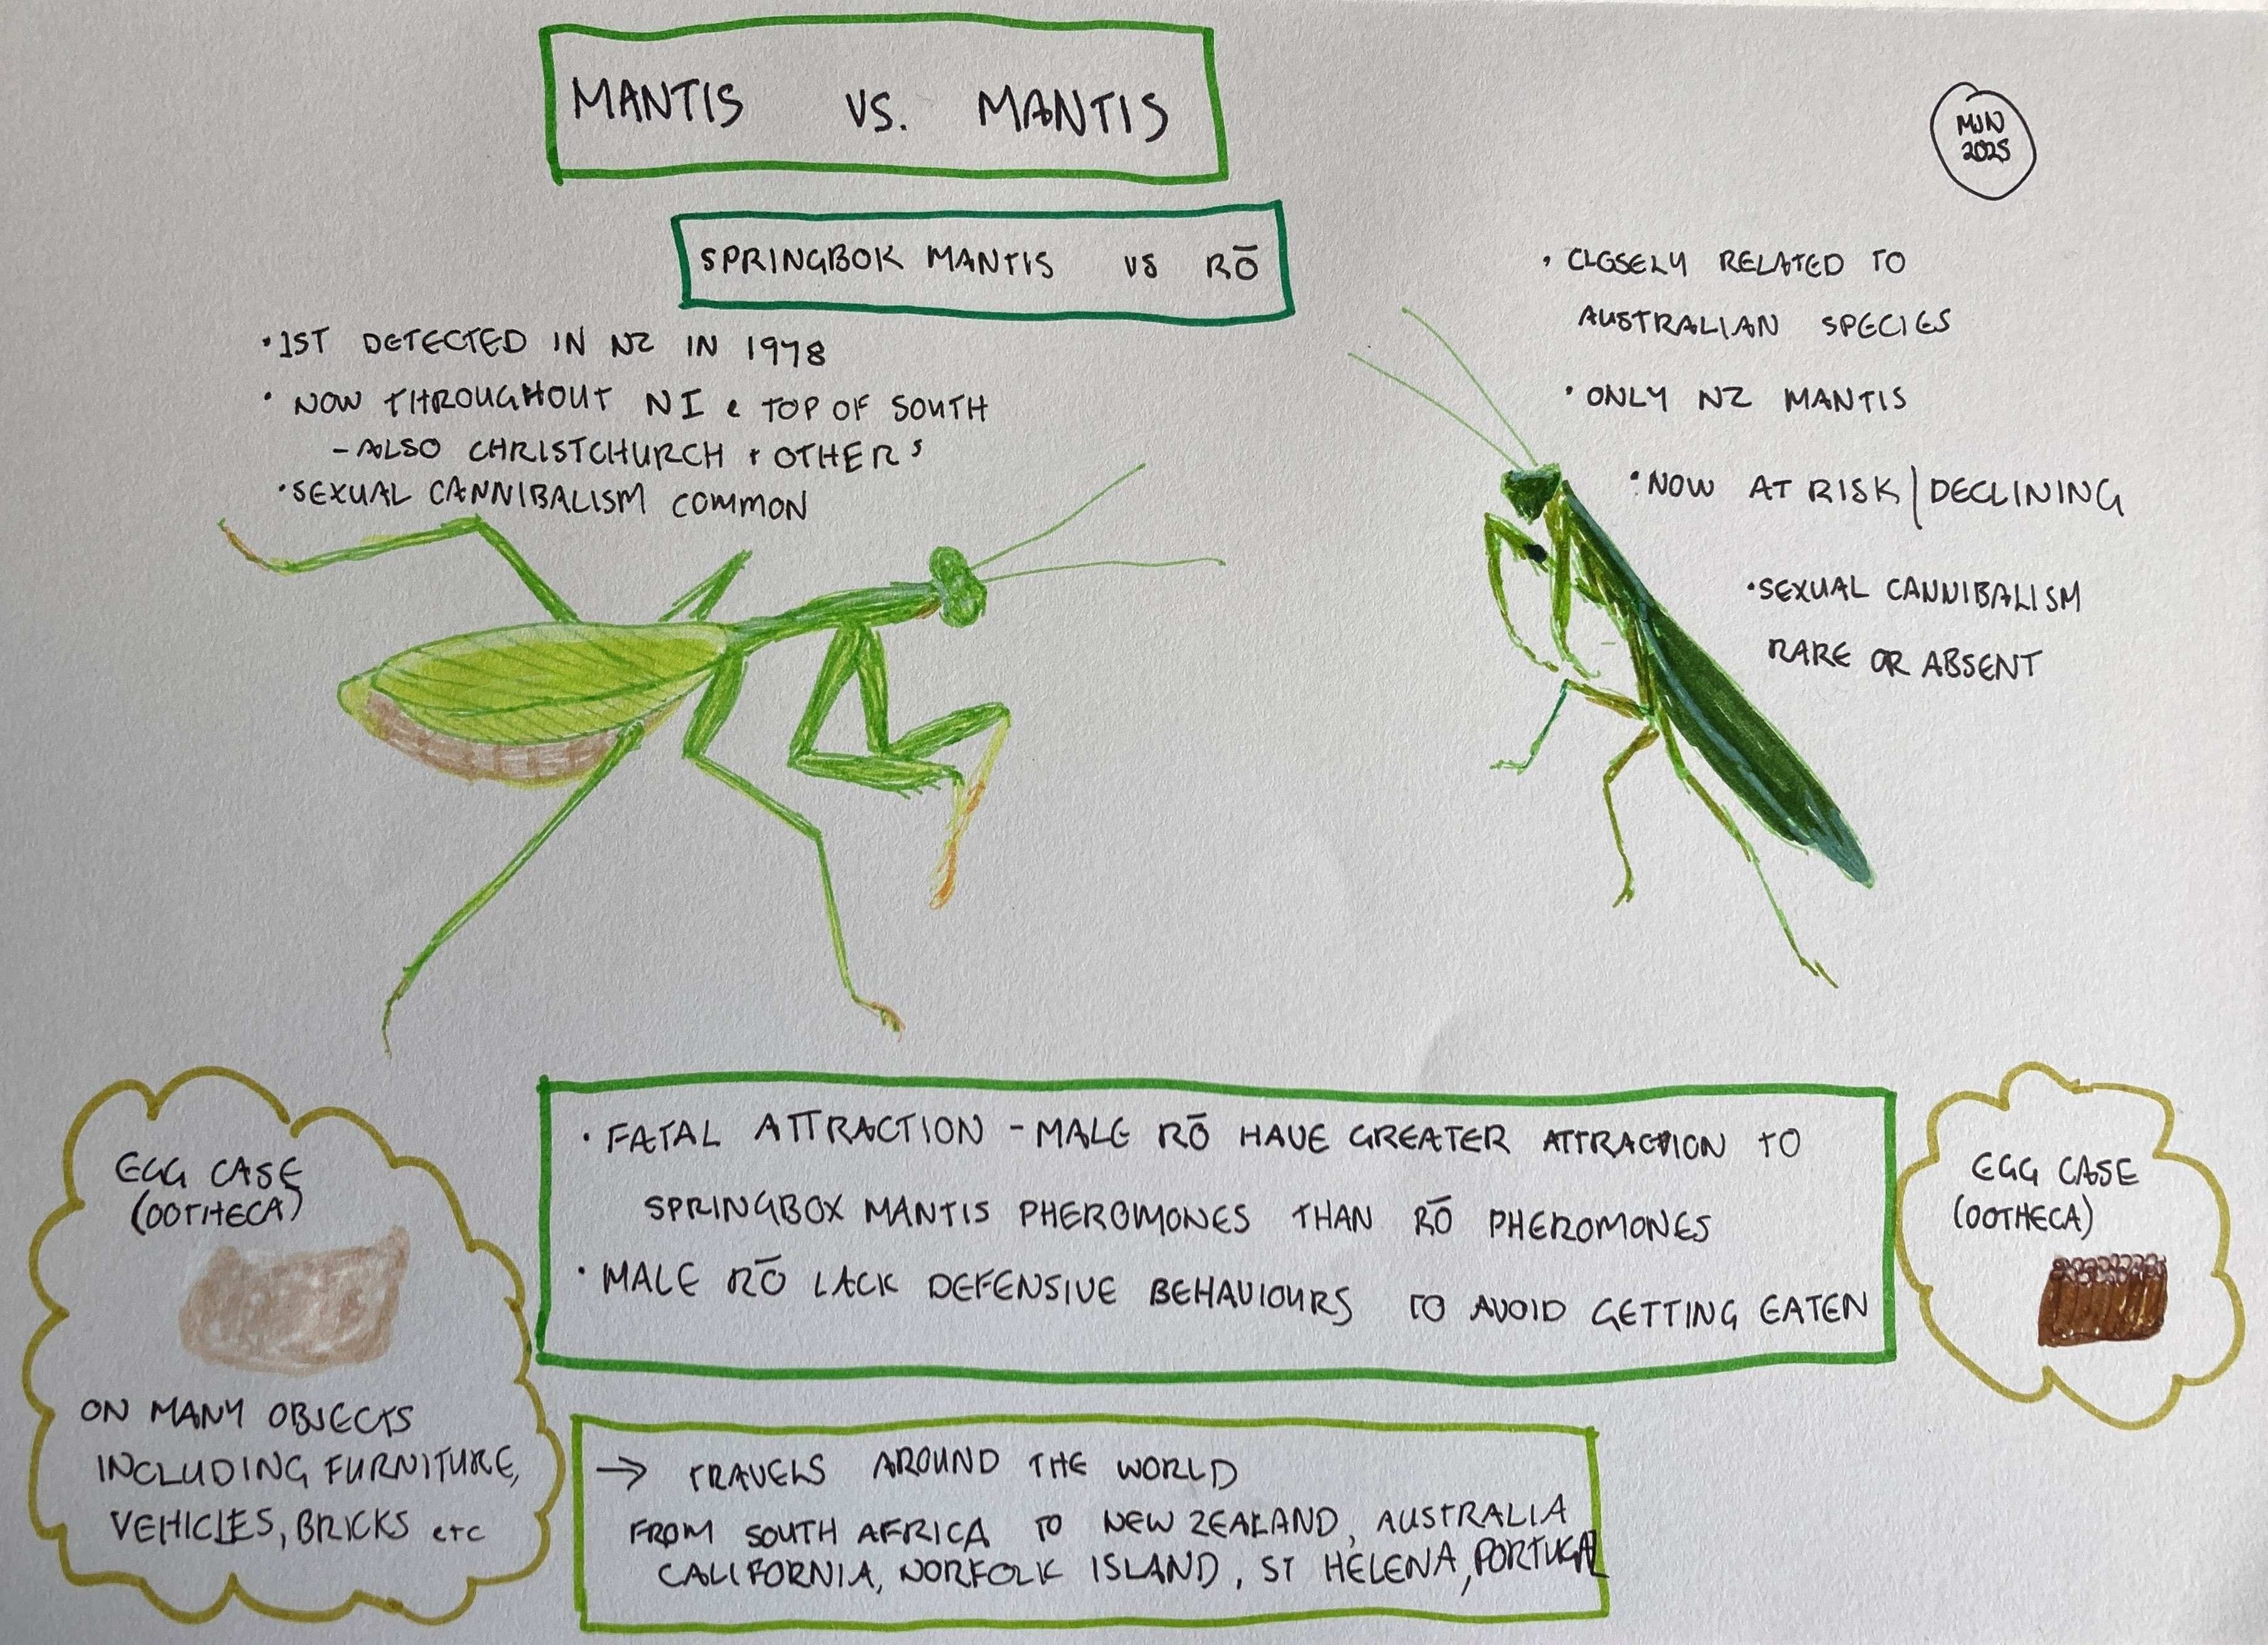 MANTIS VS. MANTIS
MJN
2025
SPRINGBOK MANTIS VS RŌ
• 1ST DETECTED IN NZ IN 1978
• NOW THROUGHOUT NI & TOP OF SOUTH
- ALSO CHRISTCHURCH + OTHERS
• SEXUAL CANNIBALISM COMMON
• CLOSELY RELATED TO
AUSTRALIAN SPECIES
• ONLY NZ MANTIS
• NOW AT RISK/DECLINING
• SEXUAL CANNIBALISM
RARE OR ABSENT
EGG CASE
(OOTHECA)
ON MANY OBJECTS
INCLUDING FURNITURE,
VEHICLES, BRICKS etc
• FATAL ATTRACTION - MALE RŌ HAVE GREATER ATTRACTION TO
SPRINGBOX MANTIS PHEROMONES THAN RŌ PHEROMONES
• MALE RŌ LACK DEFENSIVE BEHAVIOURS TO AVOID GETTING EATEN
EGG CASE
(OOTHECA)
→ TRAVELS AROUND THE WORLD
FROM SOUTH AFRICA TO NEW ZEALAND, AUSTRALIA
CALIFORNIA, NORFOLK ISLAND, ST HELENA, PORTUGAL